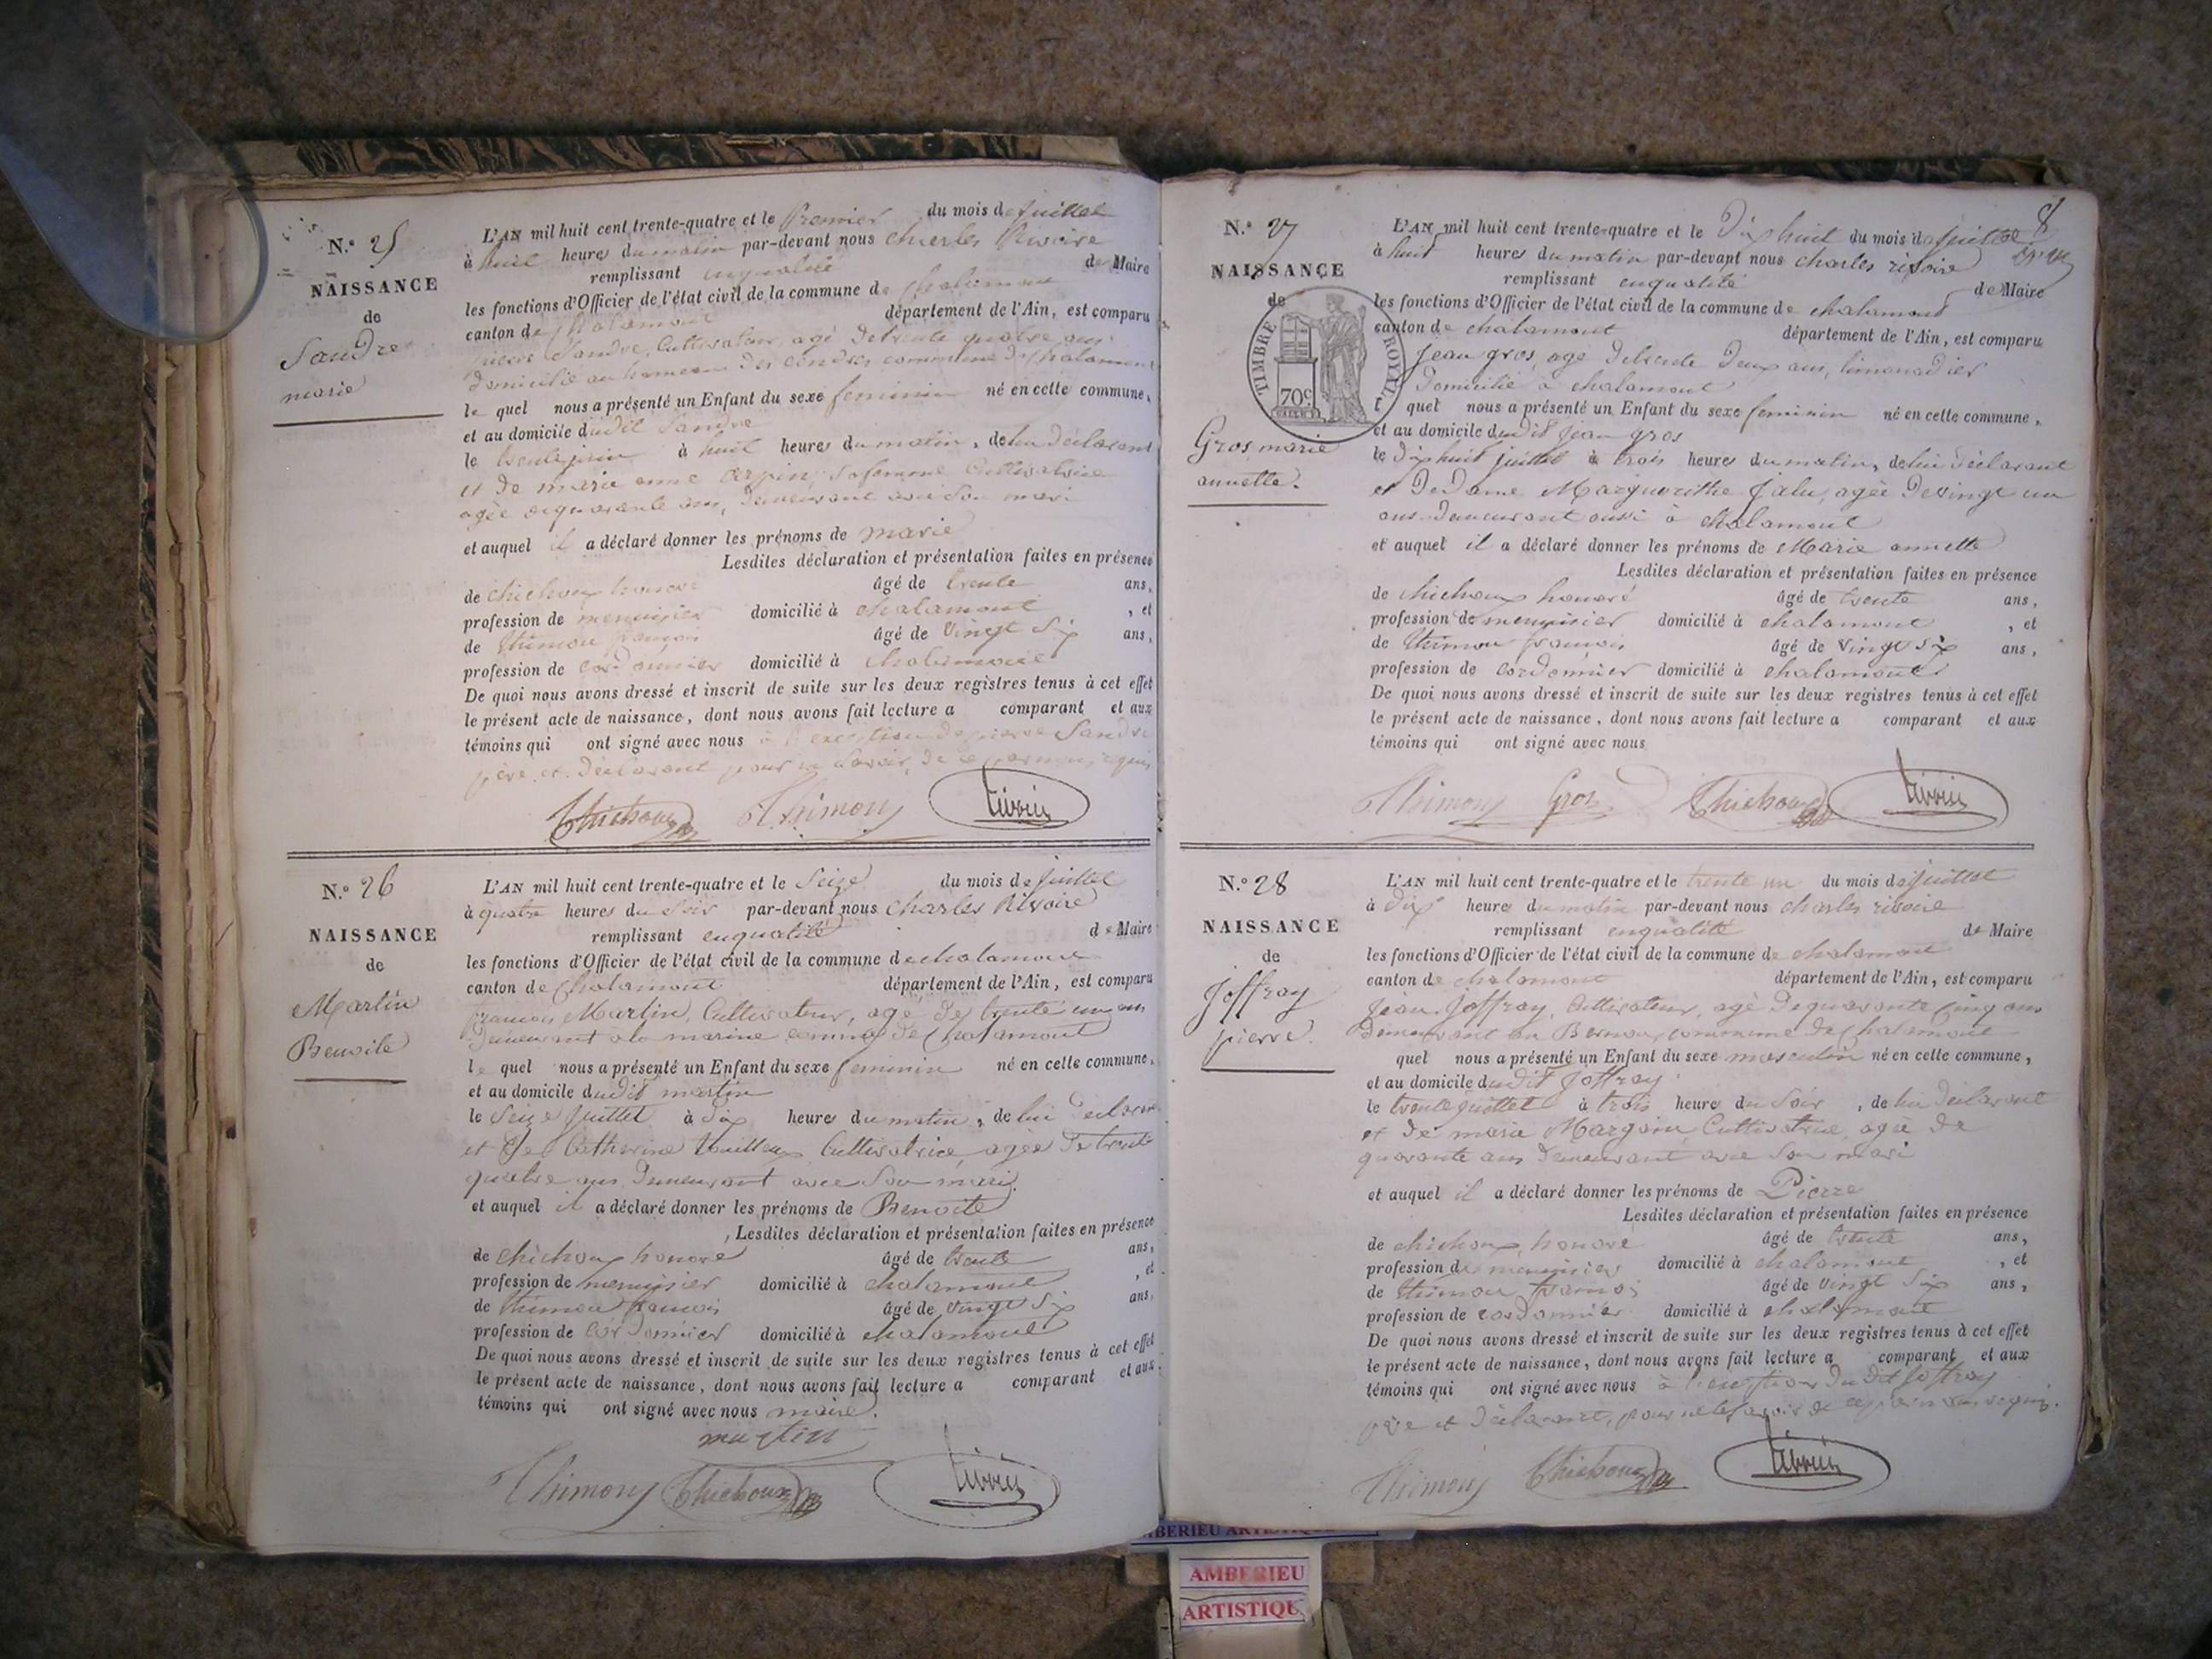 N.° 25
NAISSANCE
de
Sandre
marie
L'AN mil huit cent trente-quatre et le Premier du mois de juillet
à huit heures du matin par-devant nous Charles Rivoire
remplissant enqualité de Maire
les fonctions d'Officier de l'état civil de la commune de Chalamont
canton de Chalamont département de l'Ain, est comparu
pierre Sandre, Cultivateur, agé detrente quatre ans
domicilié au hameau des commune de Chalamont
le quel nous a présenté un Enfant du sexe feminin né en cette commune,
et au domicile dudit Sandre
le trente juin à huit heures du matin, de lui déclarant
et de marie anne Carpin, sa femme Cultivatrice
agée dequarante ans, demeurant avec Son mari
et auquel il a déclaré donner les prénoms de marie
Lesdites déclaration et présentation faites en présence
de chichoux honoré âgé de trente ans,
profession de menuisier domicilié à chalamont , et
de thimon françois âgé de Vingt Six ans,
profession de cordonnier domicilié à chalamont
De quoi nous avons dressé et inscrit de suite sur les deux registres tenus à cet effet
le présent acte de naissance, dont nous avons fait lecture a comparant et aux
témoins qui ont signé avec nous à l'exception de pierre Sandre
père et déclarant pour ne Savoir, de ce par nous requis
Chichoux Thimon Rivoire
N.° 26
NAISSANCE
de
Martin
Benoite
L'AN mil huit cent trente-quatre et le Seize du mois de juillet
à quatre heures du Soir par-devant nous Charles Rivoire
remplissant enqualité de Maire
les fonctions d'Officier de l'état civil de la commune de chalamont
canton de Chalamont département de l'Ain, est comparu
françois Martin, Cultivateur, agé de trente un ans
Demeurant a la marine commune de Chalamont
le quel nous a présenté un Enfant du sexe feminin né en cette commune,
et au domicile dudit martin
le Seize juillet à dix heures du matin, de lui déclarant
et de Catherine Cultivatrice, agée de trente
quatre ans Demeurant avec Son mari
et auquel il a déclaré donner les prénoms de Benoite
Lesdites déclaration et présentation faites en présence
de chichoux honoré âgé de trente ans,
profession de menuisier domicilié à chalamont , et
de thimon françois âgé de vingt Six ans,
profession de Cordonnier domicilié à chalamont
De quoi nous avons dressé et inscrit de suite sur les deux registres tenus à cet effet
le présent acte de naissance, dont nous avons fait lecture a comparant et aux
témoins qui ont signé avec nous maire.
martin
Thimon Chichoux Rivoire
8
N.° 27
NAISSANCE
de
TIMBRE ROYAL
70c
Gros marie
annette.
L'AN mil huit cent trente-quatre et le Dix huit du mois de juillet
à huit heures du matin par-devant nous charles rivoire
remplissant enqualité de Maire
les fonctions d'Officier de l'état civil de la commune de chalamont
canton de chalamont département de l'Ain, est comparu
Jean gros, agé Detrente Deux ans, limonadier
Domicilié à chalamont
quel nous a présenté un Enfant du sexe feminin né en cette commune,
et au domicile dudit jean gros
le Dix huit juillet à trois heures du matin, de lui déclarant
et De Dame Marguerithe Jalu, agée Devingt un
ans Demeurant aussi à chalamont
et auquel il a déclaré donner les prénoms de Marie annette
Lesdites déclaration et présentation faites en présence
de chichoux honoré âgé de trente ans,
profession de menuisier domicilié à chalamont , et
de thimon françois âgé de Vingt Six ans,
profession de Cordonnier domicilié à chalamont
De quoi nous avons dressé et inscrit de suite sur les deux registres tenus à cet effet
le présent acte de naissance, dont nous avons fait lecture a comparant et aux
témoins qui ont signé avec nous
Thimon Gros Chichoux Rivoire
N.° 28
NAISSANCE
de
Joffray
pierre.
L'AN mil huit cent trente-quatre et le trente un du mois de juillet
à dix heures du matin par-devant nous charles rivoire
remplissant enqualité de Maire
les fonctions d'Officier de l'état civil de la commune de chalamont
canton de chalamont département de l'Ain, est comparu
Jean Joffray, Cultivateur, agé Dequarante Cinq ans
Demeurant au commune de Chalamont
quel nous a présenté un Enfant du sexe masculin né en cette commune,
et au domicile dudit Joffray
le trente juillet à trois heures du Soir , de lui déclarant
et de marie Margoin, Cultivatrice, agée de
quarante ans Demeurant avec Son mari
et auquel il a déclaré donner les prénoms de Pierre
Lesdites déclaration et présentation faites en présence
de chichoux honoré âgé de trente ans,
profession de menuisier domicilié à chalamont , et
de thimon françois âgé de vingt Six ans,
profession de cordonnier domicilié à chalamont
De quoi nous avons dressé et inscrit de suite sur les deux registres tenus à cet effet
le présent acte de naissance, dont nous avons fait lecture a comparant et aux
témoins qui ont signé avec nous à l'exception du dit Joffray
père et déclarant, pour ne le savoir de ce par nous requis.
Thimon Chichoux Rivoire
AMBERIEU ARTISTIQUE
AMBERIEU
ARTISTIQU